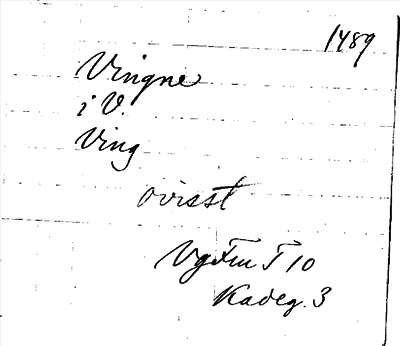 1489
Vingne
i V.
Ving
ovisst
VgFnr T 10
Kadeg. 3